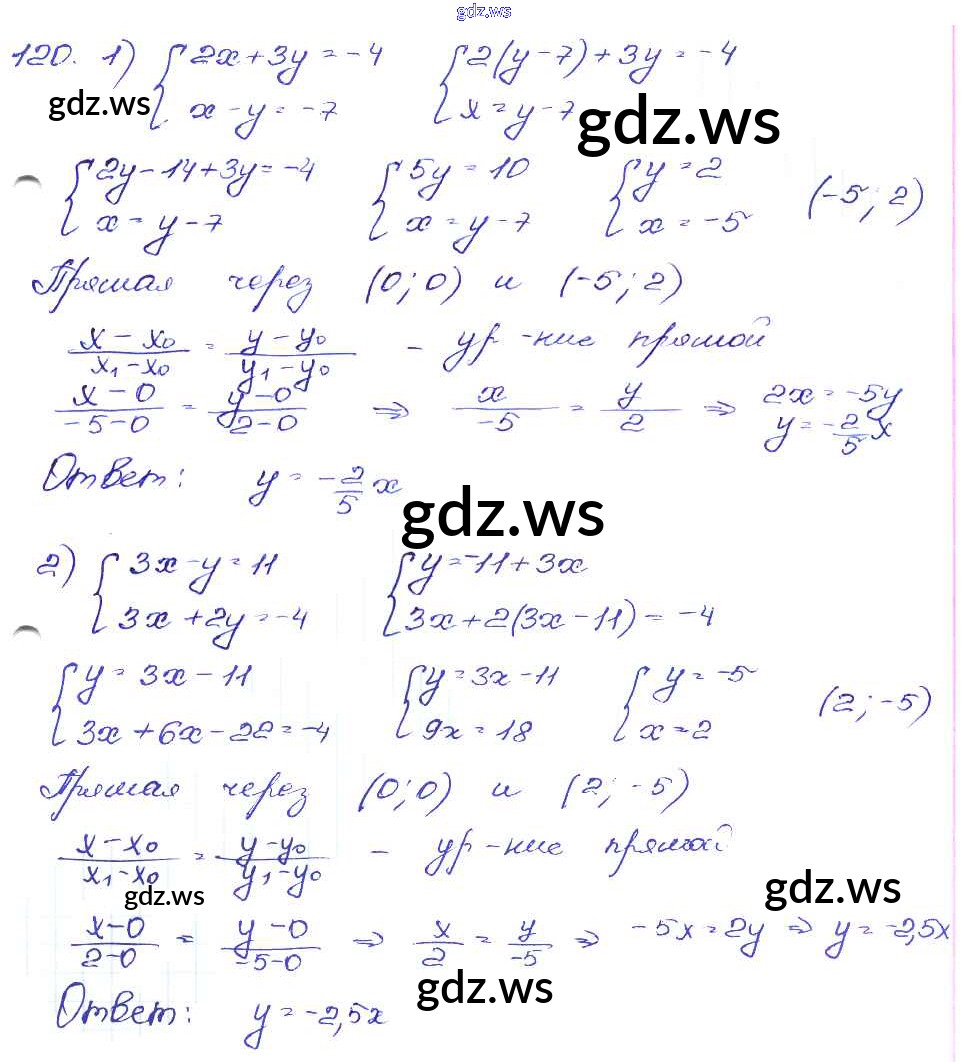 gdz.ws
120. 1) { 2x+3y=-4 { 2(y-7)+3y=-4
{ x-y=-7 { x=y-7
gdz.ws gdz.ws
{ 2y-14+3y=-4 { 5y=10 { y=2 (-5; 2)
{ x=y-7 { x=y-7 { x=-5
Прямая через (0; 0) и (-5; 2)
(x-x₀)/(x₁-x₀) = (y-y₀)/(y₁-y₀) - ур-ние прямой
(x-0)/(-5-0) = (y-0)/(2-0) ⇒ x/-5 = y/2 ⇒ 2x=-5y
y=-2/5x
Ответ: y=-2/5x
gdz.ws
2) { 3x-y=11 { y=-11+3x
{ 3x+2y=-4 { 3x+2(3x-11)=-4
{ y=3x-11 { y=3x-11 { y=-5 (2; -5)
{ 3x+6x-22=-4 { 9x=18 { x=2
Прямая через (0; 0) и (2; -5)
(x-x₀)/(x₁-x₀) = (y-y₀)/(y₁-y₀) - ур-ние прямой
gdz.ws gdz.ws
(x-0)/(2-0) = (y-0)/(-5-0) ⇒ x/2 = y/-5 ⇒ -5x=2y ⇒ y=-2,5x
gdz.ws
Ответ: y=-2,5x